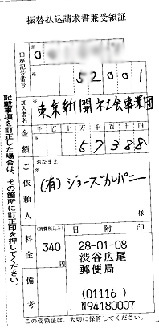 振替払込請求書兼受領証
口座記号番号
0
52001
加入者名
東京新聞社会事業団
金額
67388
ご依頼人
(有)ジョーズカンパニー
料金
340
日附印
28-01-08
渋谷広尾
郵便局
備考
(01116)
N94180007
この受領証は、大切に保管してください。
記載事項を訂正した場合は、その箇所に訂正印を押してください。